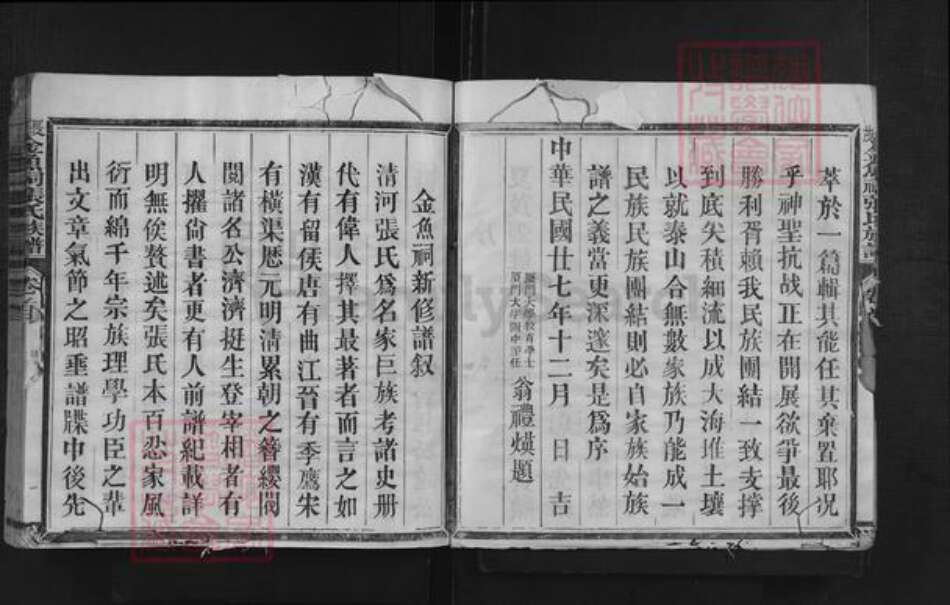 萃於一篇輯其能任其棄置耶况
乎神聖抗战正在開展欲爭最後
勝利胥賴我民族團結一致支撐
到底矢積細流以成大海堆土壤
以就泰山合無數家族乃能成一
民族民族團結則必自家族始族
譜之義當更深邃矣是爲序
厦門大學教育學士
厦門大學附中主任
翁禮煐題
中華民國廿七年十二月 日吉
金魚祠新修譜叙
清河張氏爲名家巨族考諸史册
代有偉人擇其最著者而言之如
漢有留侯唐有曲江晉有季鷹宋
有橫渠歷元明清累朝之簪纓閥
閱諸名公濟濟挺生登宰相者有
人擢尙書者更有人前譜紀載詳
明無俟贅述矣張氏本百忍家風
衍而綿千年宗族理學功臣之輩
出文章氣節之昭垂譜牒中後先
金魚祠張氏族譜